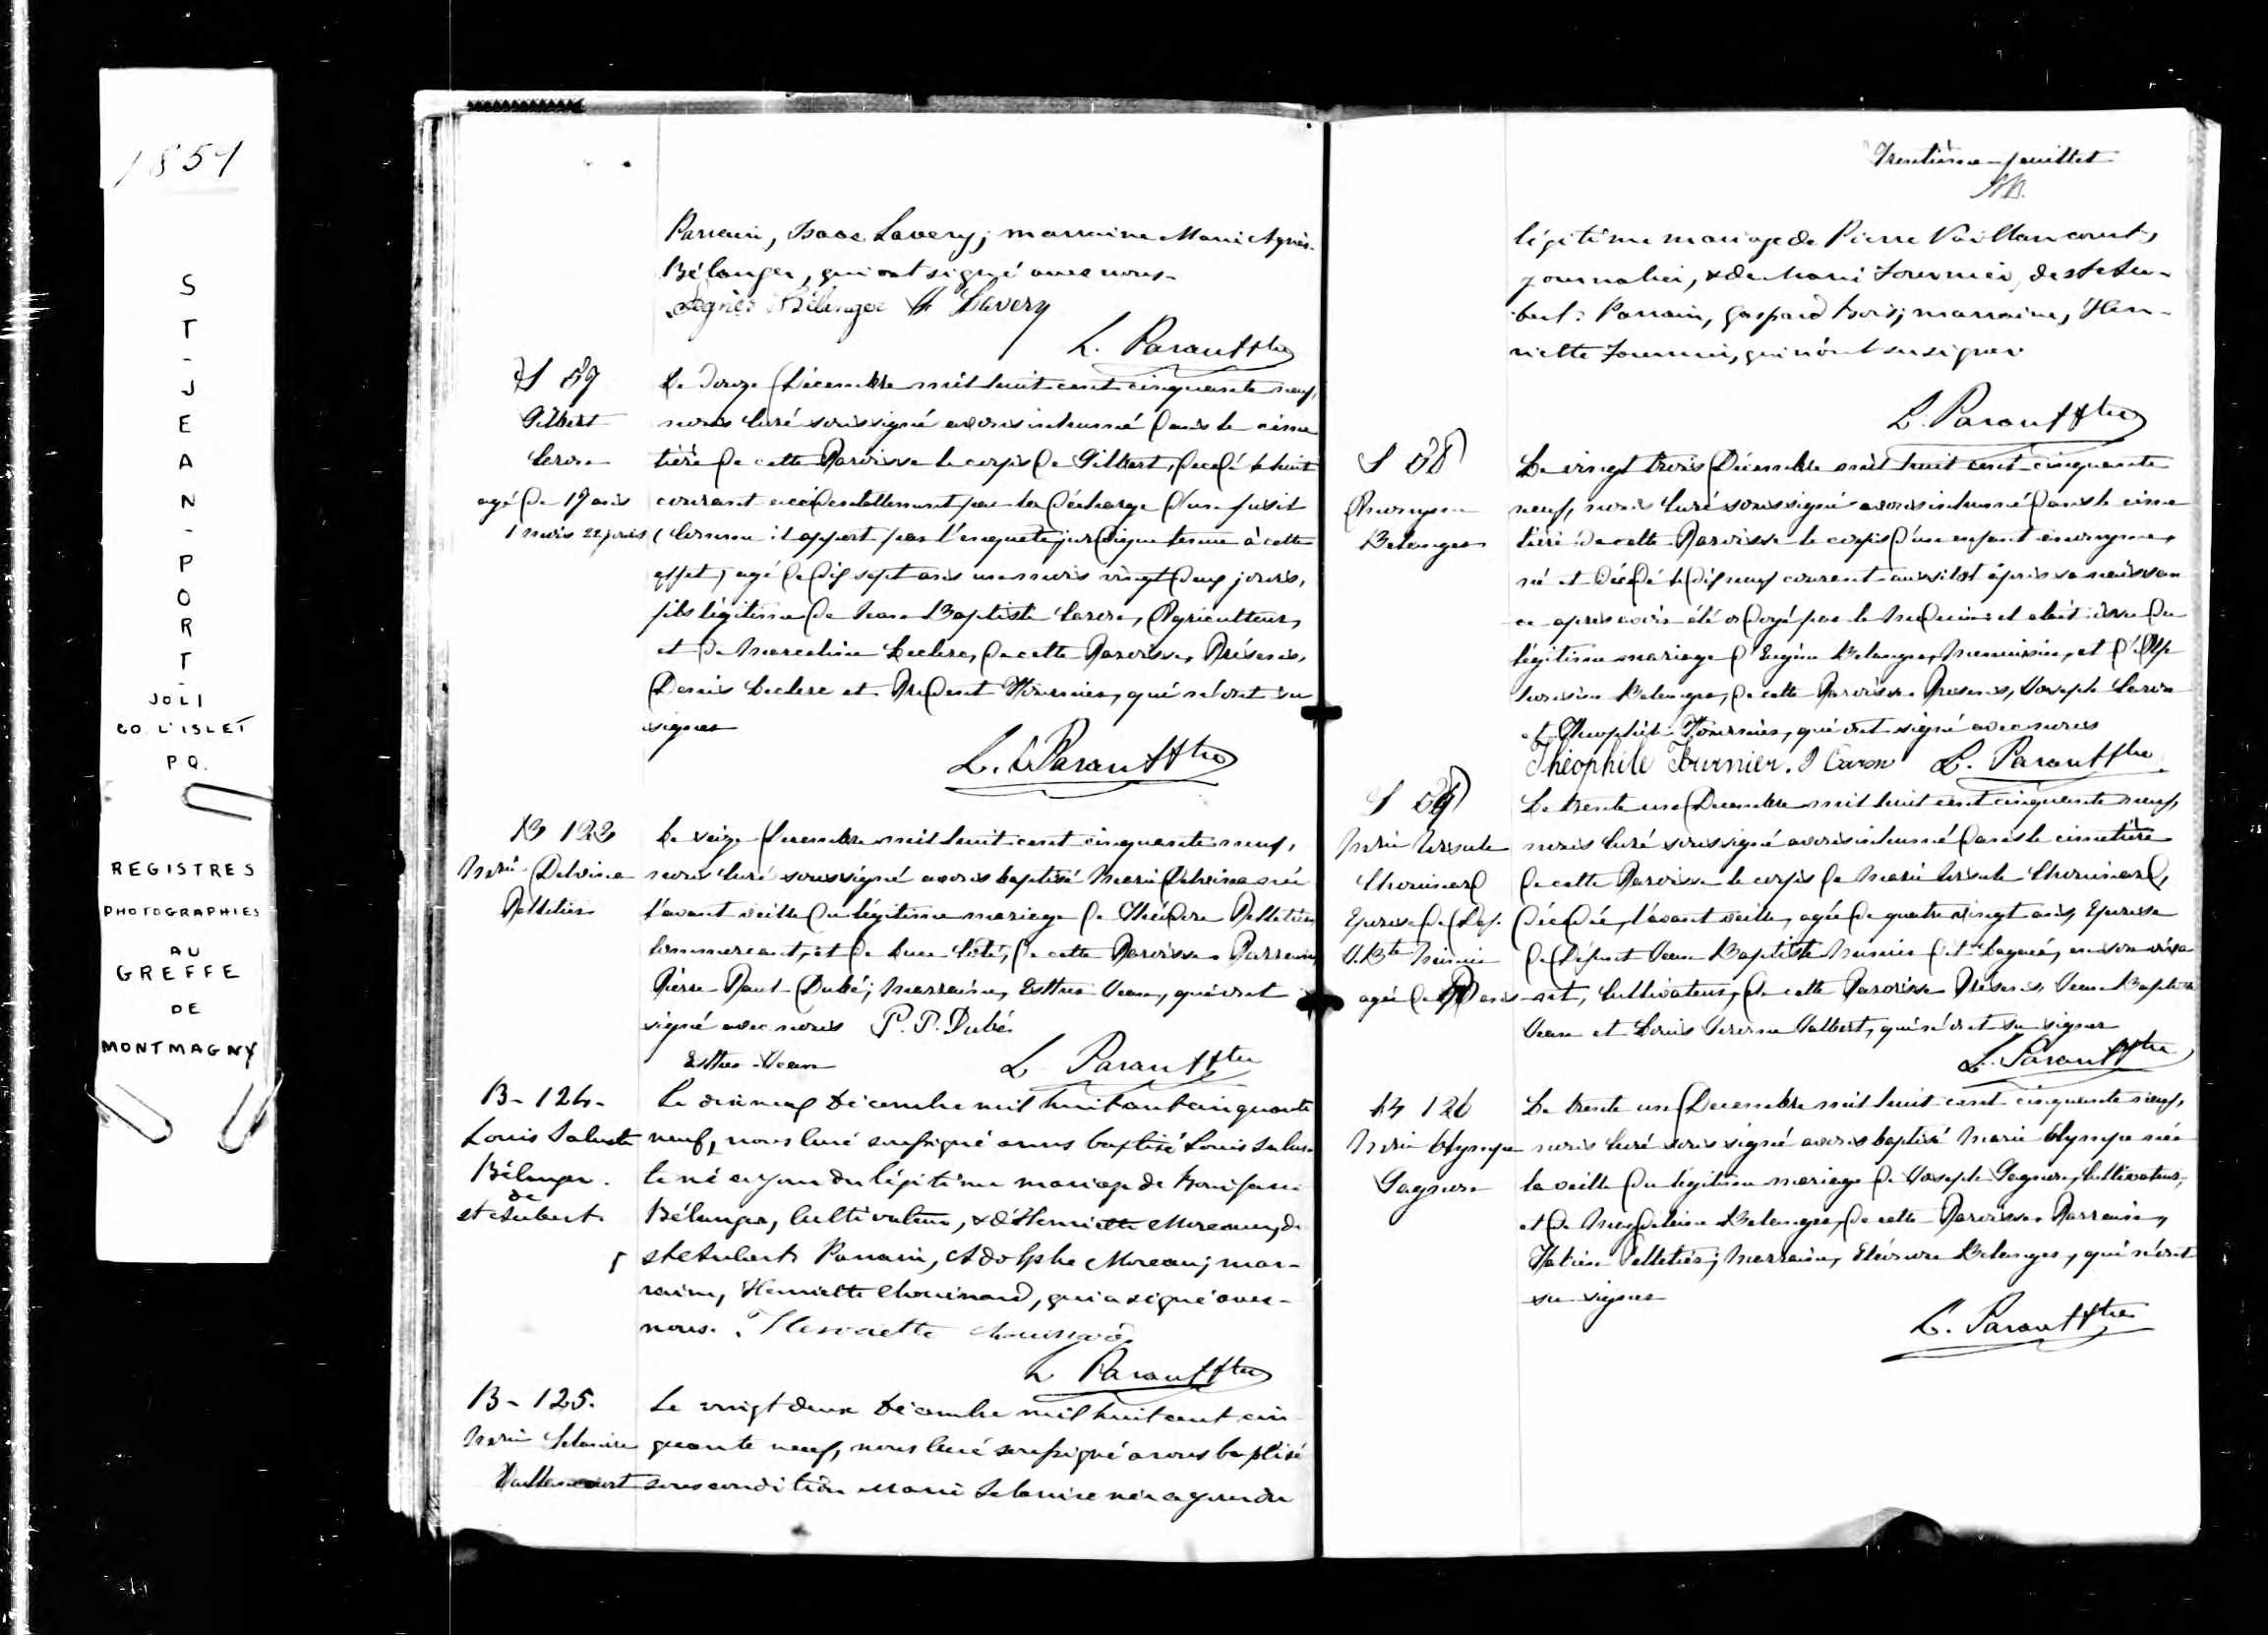 1859
ST-JEAN-PORT-
JOLI
CO. L'ISLET
P.Q.
REGISTRES
PHOTOGRAPHIES
AU
GREFFE
DE
MONTMAGNY
Parrain, Isaac Lavery; marraine Marie Agnès
Bélanger, qui ont signé avec nous.
Agnès Bélanger Lavery
L. Parant Ptre
S 87
Gilbert
Caron
agé de 17 ans
1 mois 22 jours
Le douze Décembre mil huit cent cinquante neuf,
nous Curé soussigné avons inhumé dans le cime
tière de cette Paroisse le corps de Gilbert, décédé le huit
courant accidentellement par la décharge d'un fusil
comme il appert par l'enquete juridique tenue à cette
effet, agé de dix sept ans un mois vingt deux jours,
fils légitime de Jean Baptiste Caron, Agriculteur,
et de Marceline Leclerc, de cette Paroisse. Présents,
Denis Leclerc et Prudent Fournier, qui n'ont su
signer
L. Parant Ptre
B 123
Marie Delvina
Pelletier
Le seize Decembre mil huit cent cinquante neuf,
nous Curé soussigné avons baptisé Marie Delvina née
l'avant veille du légitime mariage de Théodore Pelletier
Commercant, et de Luce Coté, de cette Paroisse. Parrain
Pierre Paul Dubé; Marraine, Esther Jean, qui ont
signé avec nous P. P. Dubé
Esther Jean
L. Parant Ptre
B - 124 -
Louis Saluste
Bélanger
de
St Aubert
Le dix neuf Décembre mil huit cent cinquante
neuf, nous Curé soussigné avons baptisé Louis Salus
te né ce jour du légitime mariage de Boniface
Bélanger, Cultivateur, & d'Henriette Moreau, de
St Aubert. Parrain, Adolphe Moreau; mar-
raine, Henriette Chouinard, qui a signé avec
nous. Henriette Chouinard
L. Parant Ptre
B - 125.
Marie
Vaillancourt
Le vingt deux Décembre mil huit cent cin
quante neuf, nous Curé soussigné avons baptisé
sous condition Marie née ce jour du
Trentième feuillet
légitime mariage de Pierre Vaillancourt,
journalier, & de Marie Fournier, de St Au-
bert. Parrain, Gaspard Bois; marraine, Hen-
riette Fournier, qui n'ont su signer
L. Parant Ptre
S 88
Anonyme
Belanger
Le vingt trois Décembre mil huit cent cinquante
neuf, nous Curé soussigné avons inhumé dans le cime
tière de cette Paroisse le corps d'un enfant anonyme,
né et décédé le dix neuf courant aussitot après sa naissan
ce après avoir été ondoyé par le Medecin et était issu du
légitime mariage d'Eugène Belanger, Menuisier, et d'Alp
honsine Belanger, de cette Paroisse. Présents, Joseph Caron
et Theophile Fournier, qui ont signé avec nous
Théophile Fournier. J Caron L. Parant Ptre
S 89
Marie Ursule
Chouinard
Epouse de Def.
J. Bte Miville
agée de 80 ans
Le trente un Decembre mil huit cent cinquante neuf,
nous Curé soussigné avons inhumé dans le cimetière
de cette Paroisse le corps de Marie Ursule Chouinard,
décédée, l'avant veille, agée de quatre vingt ans, Epouse
de Défunt Jean Baptiste en son viva
nt, Cultivateur, de cette Paroisse. Présents, Jean Baptiste
Jean et Louis Jerome Jalbert, qui n'ont su signer
L. Parant Ptre
B 126
Marie Olympe
Gagnon
Le trente un Decembre mil huit cent cinquante neuf,
nous Curé soussigné avons baptisé Marie Olympe née
la veille du légitime mariage de Joseph Gagnon, Cultivateur,
et de Magdeleine Belanger, de cette Paroisse. Parrain,
Pelletier; Marraine, Eléonore Belanger, qui n'ont
su signer
L. Parant Ptre